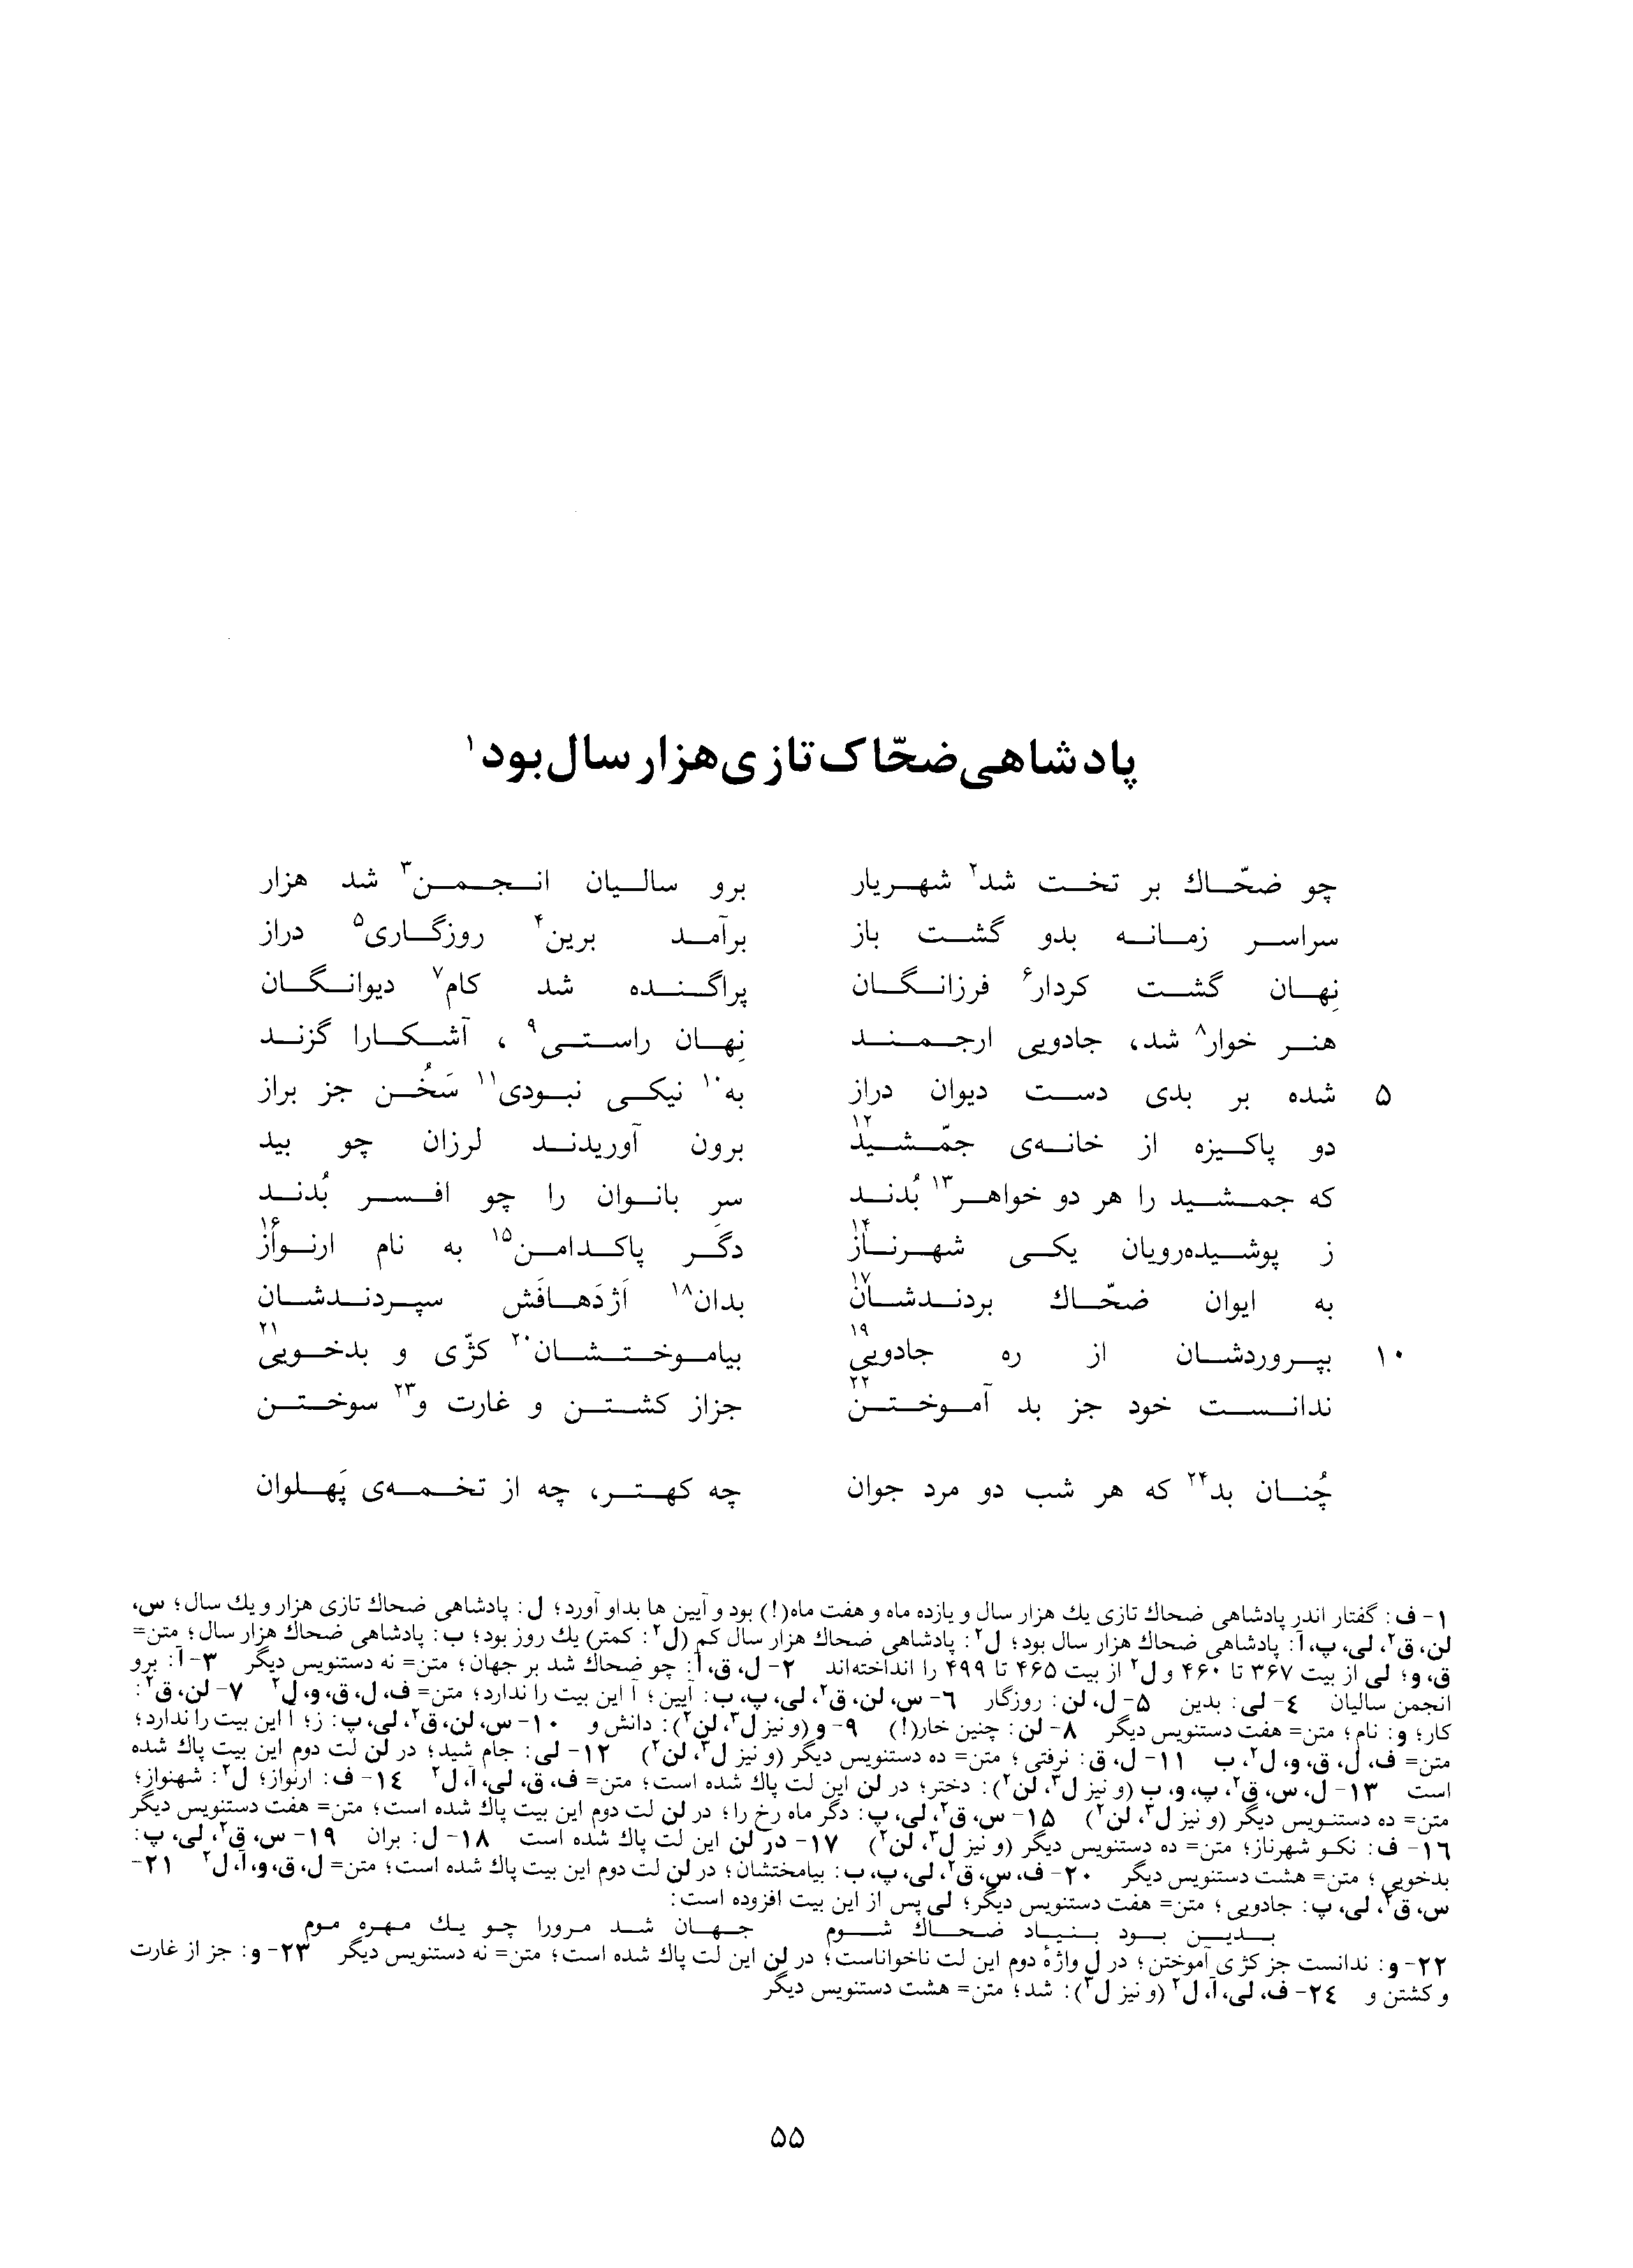 پادشاهی ضحّاک تازی هزار سال بود۱
چو ضحّاك بر تخت شد۲ شهریار برو سالیان انجمن۳ شد هزار
سراسر زمانه بدو گشت باز برآمد برین۴ روزگاری۵ دراز
نِهان گشت کردار۶ فرزانگان پراگنده شد کام۷ دیوانگان
هنر خوار۸ شد، جادویی ارجمند نِهان راستی۹، آشکارا گزند
۵ شده بر بدی دست دیوان دراز به۱۰ نیکی نبودی۱۱ سَخُن جز براز
دو پاکیزه از خانه‌ی جمّشید۱۲ برون آوریدند لرزان چو بید
که جمشید را هر دو خواهر۱۳ بُدند سرِ بانوان را چو افسر بُدند
ز پوشیده‌رویان یکی شهرناز۱۴ دگر پاکدامن۱۵ به نام ارنواز۱۶
به ایوان ضحّاك بردندشان۱۷ بدان۱۸ اَژدَهافَش سپردندشان
۱۰ بپروردشان از ره جادویی۱۹ بیاموختشان۲۰ کژّی و بدخویی۲۱
ندانست خود جز بد آموختن۲۲ جزاز کشتن و غارت و۲۳ سوختن
چُنان بد۲۴ که هر شب دو مرد جوان چه کهتر، چه از تخمه‌ی پَهلوان
۱- ف: گفتار اندر پادشاهی ضحاك تازی یك هزار سال و یازده ماه و هفت ماه(!) بود و آیین ها بداو آورد؛ ل: پادشاهی ضحاك تازی هزار و یك سال؛ س،
لن، ق۲، لی، پ، آ: پادشاهی ضحاك هزار سال بود؛ ل۲: پادشاهی ضحاك هزار سال کم (ل۲: کمتر) یك روز بود؛ ب: پادشاهی ضحاك هزار سال؛ متن=
ق، و؛ لی از بیت ۳۶۷ تا ۴۶۰ و ل۲ از بیت ۴۶۵ تا ۴۹۹ را انداخته‌اند ۲- ل، ق، آ: چو ضحاك شد بر جهان؛ متن= نه دستنویس دیگر ۳- آ: برو
انجمن سالیان ٤- لی: بدین ۵- ل، لن: روزگار ٦- س، لن، ق۲، لی، پ، ب: آیین؛ آ این بیت را ندارد؛ متن= ف، ل، ق، و، ل۲ ۷- لن، ق۲:
کار؛ و: نام؛ متن= هفت دستنویس دیگر ۸- لن: چنین خار(!) ۹- و (و نیز ل۳، لن۲): دانش و ۱۰- س، لن، ق۲، لی، پ: ز؛ آ این بیت را ندارد؛
متن= ف، ل، ق، و، ل۲، ب ۱۱- ل، ق: نرفتی؛ متن= ده دستنویس دیگر (و نیز ل۳، لن۲) ۱۲- لی: جام شید؛ در لن لت دوم این بیت پاك شده
است ۱۳- ل، س، ق۲، پ، و، ب (و نیز ل۳، لن۲): دختر؛ در لن این لت پاك شده است؛ متن= ف، ق، لی، آ، ل۲ ۱٤- ف: ارنواز؛ ل۲: شهنواز؛
متن= ده دستنویس دیگر (و نیز ل۳، لن۲) ۱۵- س، ق۲، لی، پ: دگر ماه رخ را؛ در لن لت دوم این بیت پاك شده است؛ متن= هفت دستنویس دیگر
۱٦- ف: نکو شهرناز؛ متن= ده دستنویس دیگر (و نیز ل۳، لن۲) ۱۷- در لن این لت پاك شده است ۱۸- ل: بران ۱۹- س، ق۲، لی، پ:
بدخویی؛ متن= هشت دستنویس دیگر ۲۰- ف، س، ق۲، لی، پ، ب: بیامختشان؛ در لن لت دوم این بیت پاك شده است؛ متن= ل، ق، و، آ، ل۲ ۲۱-
س، ق۲، لی، پ: جادویی؛ متن= هفت دستنویس دیگر؛ لی پس از این بیت افزوده است:
بدین بود بنیاد ضحاك شوم جهان شد مرورا چو یك مهره موم
۲۲- و: ندانست جز کژی آموختن؛ در ل واژهٔ دوم این لت ناخواناست؛ در لن این لت پاك شده است؛ متن= نه دستنویس دیگر ۲۳- و: جز از غارت
و کشتن و ۲٤- ف، لی، آ، ل۲ (و نیز ل۳): شد؛ متن= هشت دستنویس دیگر
۵۵